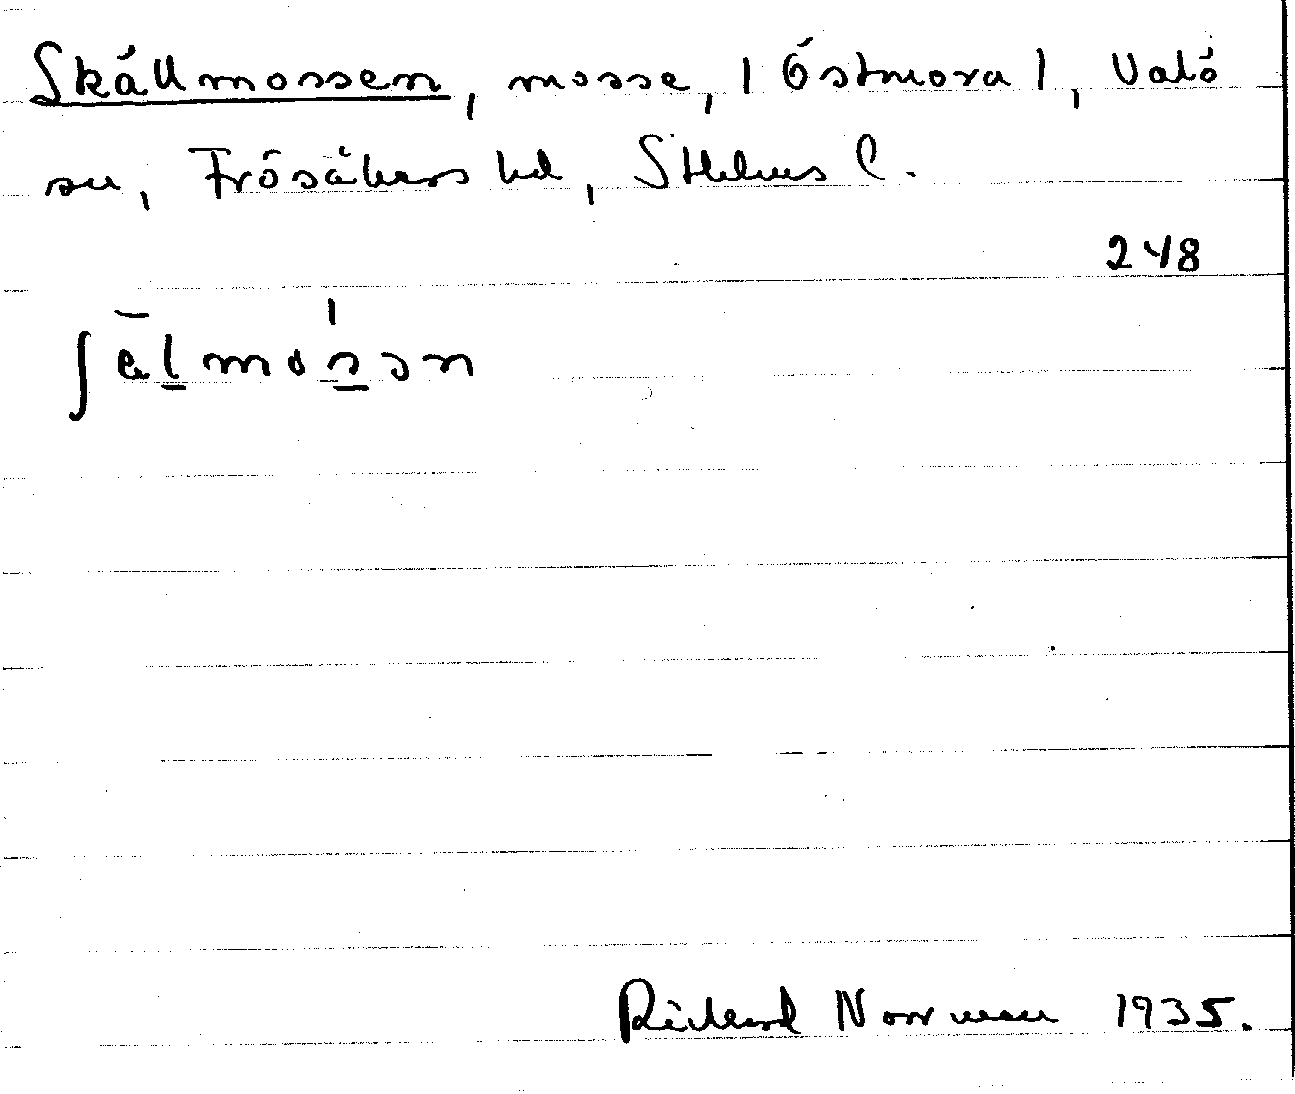 Skällmossen, mosse, | Östmora |, Valö
sn, Frösåkers hd, Sthlms C.
248
ʃälmosən
Rickard Norrman 1935.